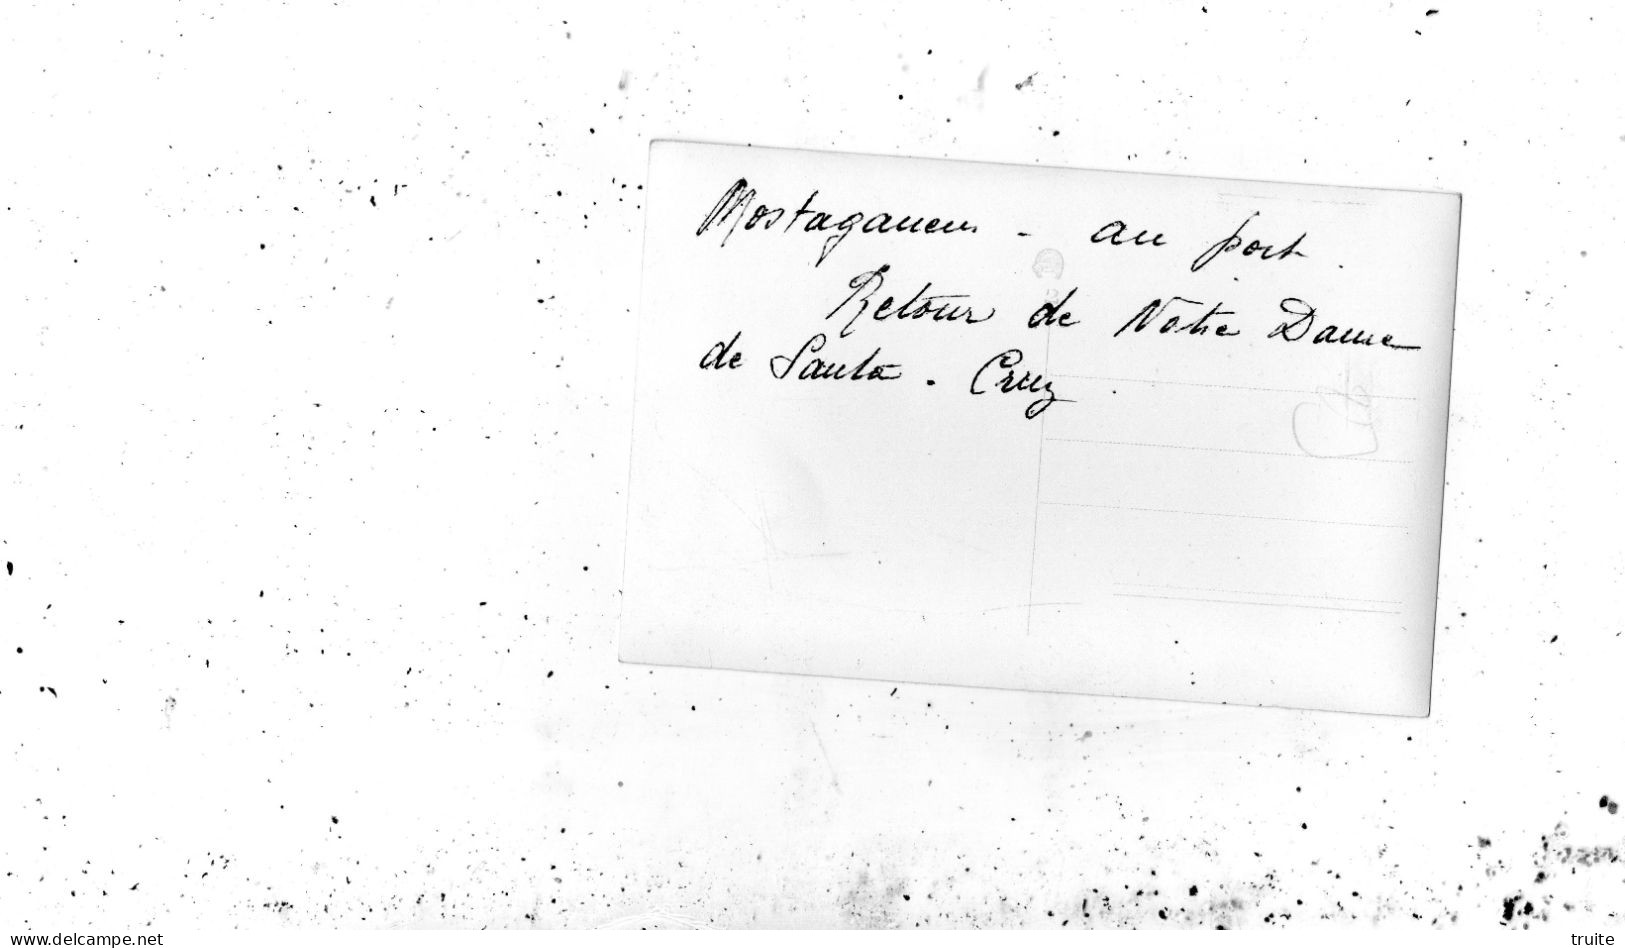 Mostaganem - au port.
Retour de Notre Dame
de Santa-Cruz.
www.delcampe.net
truite